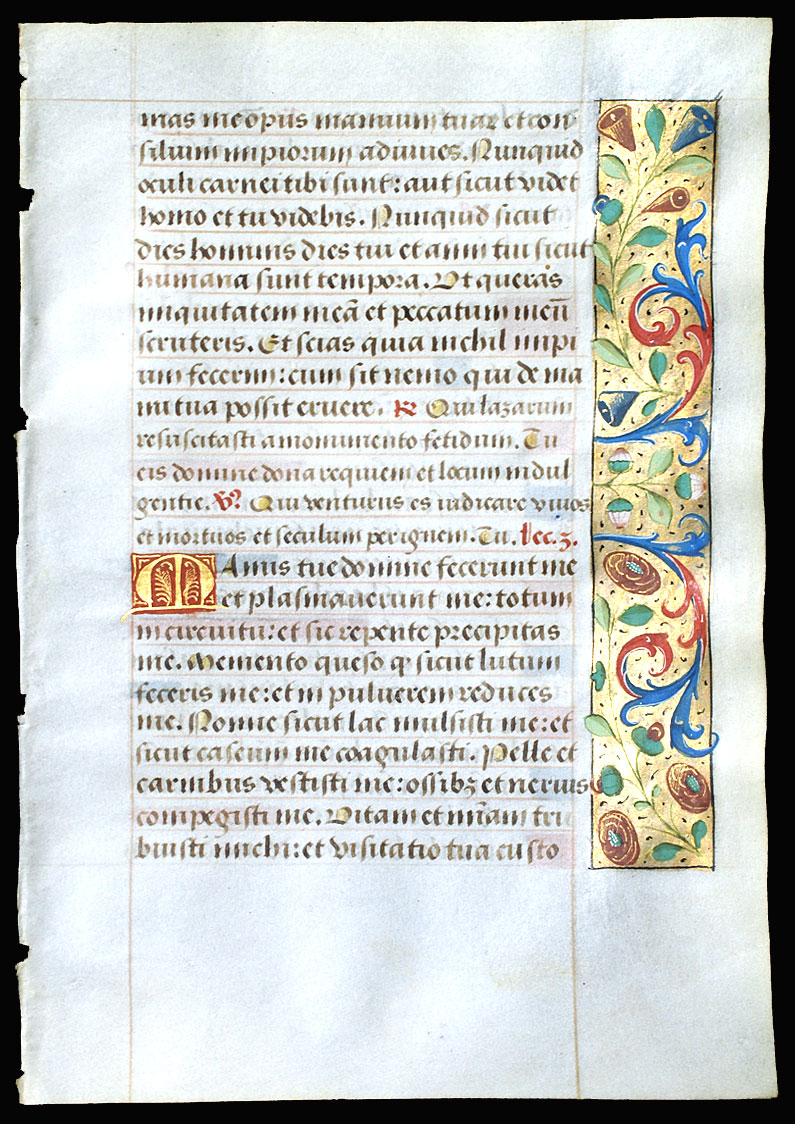 mas me opus manuum tuar et con
silium impiorum adiuues. Nunquid
oculi carnei tibi sunt: aut sicut videt
homo et tu videbis. Nunquid sicut
dies hominis dies tui et anni tui sicut
humana sunt tempora. Vt queras
iniquitatem meā et peccatum meū
scruteris. Et scias quia nichil impi
um fecerim: cum sit nemo qui de ma
nu tua possit eruere. ℟ Qui lazarum
resuscitasti a monumento fetidum. Tu
eis domine dona requiem et locum indul
gentie. ℣ Qui venturus es iudicare viuos
et mortuos et seculum per ignem. Tu. Lec. 3.
Manus tue domine fecerunt me
et plasmauerunt me: totum
in circuitu: et sic repente precipitas
me. Memento queso ꝙ sicut lutum
feceris me: et in puluerem reduces
me. Nonne sicut lac mulsisti me: et
sicut caseum me coagulasti. Pelle et
carnibus vestisti me: ossibꝫ et neruis
compegisti me. Vitam et mīam tri
buisti michi: et visitatio tua custo